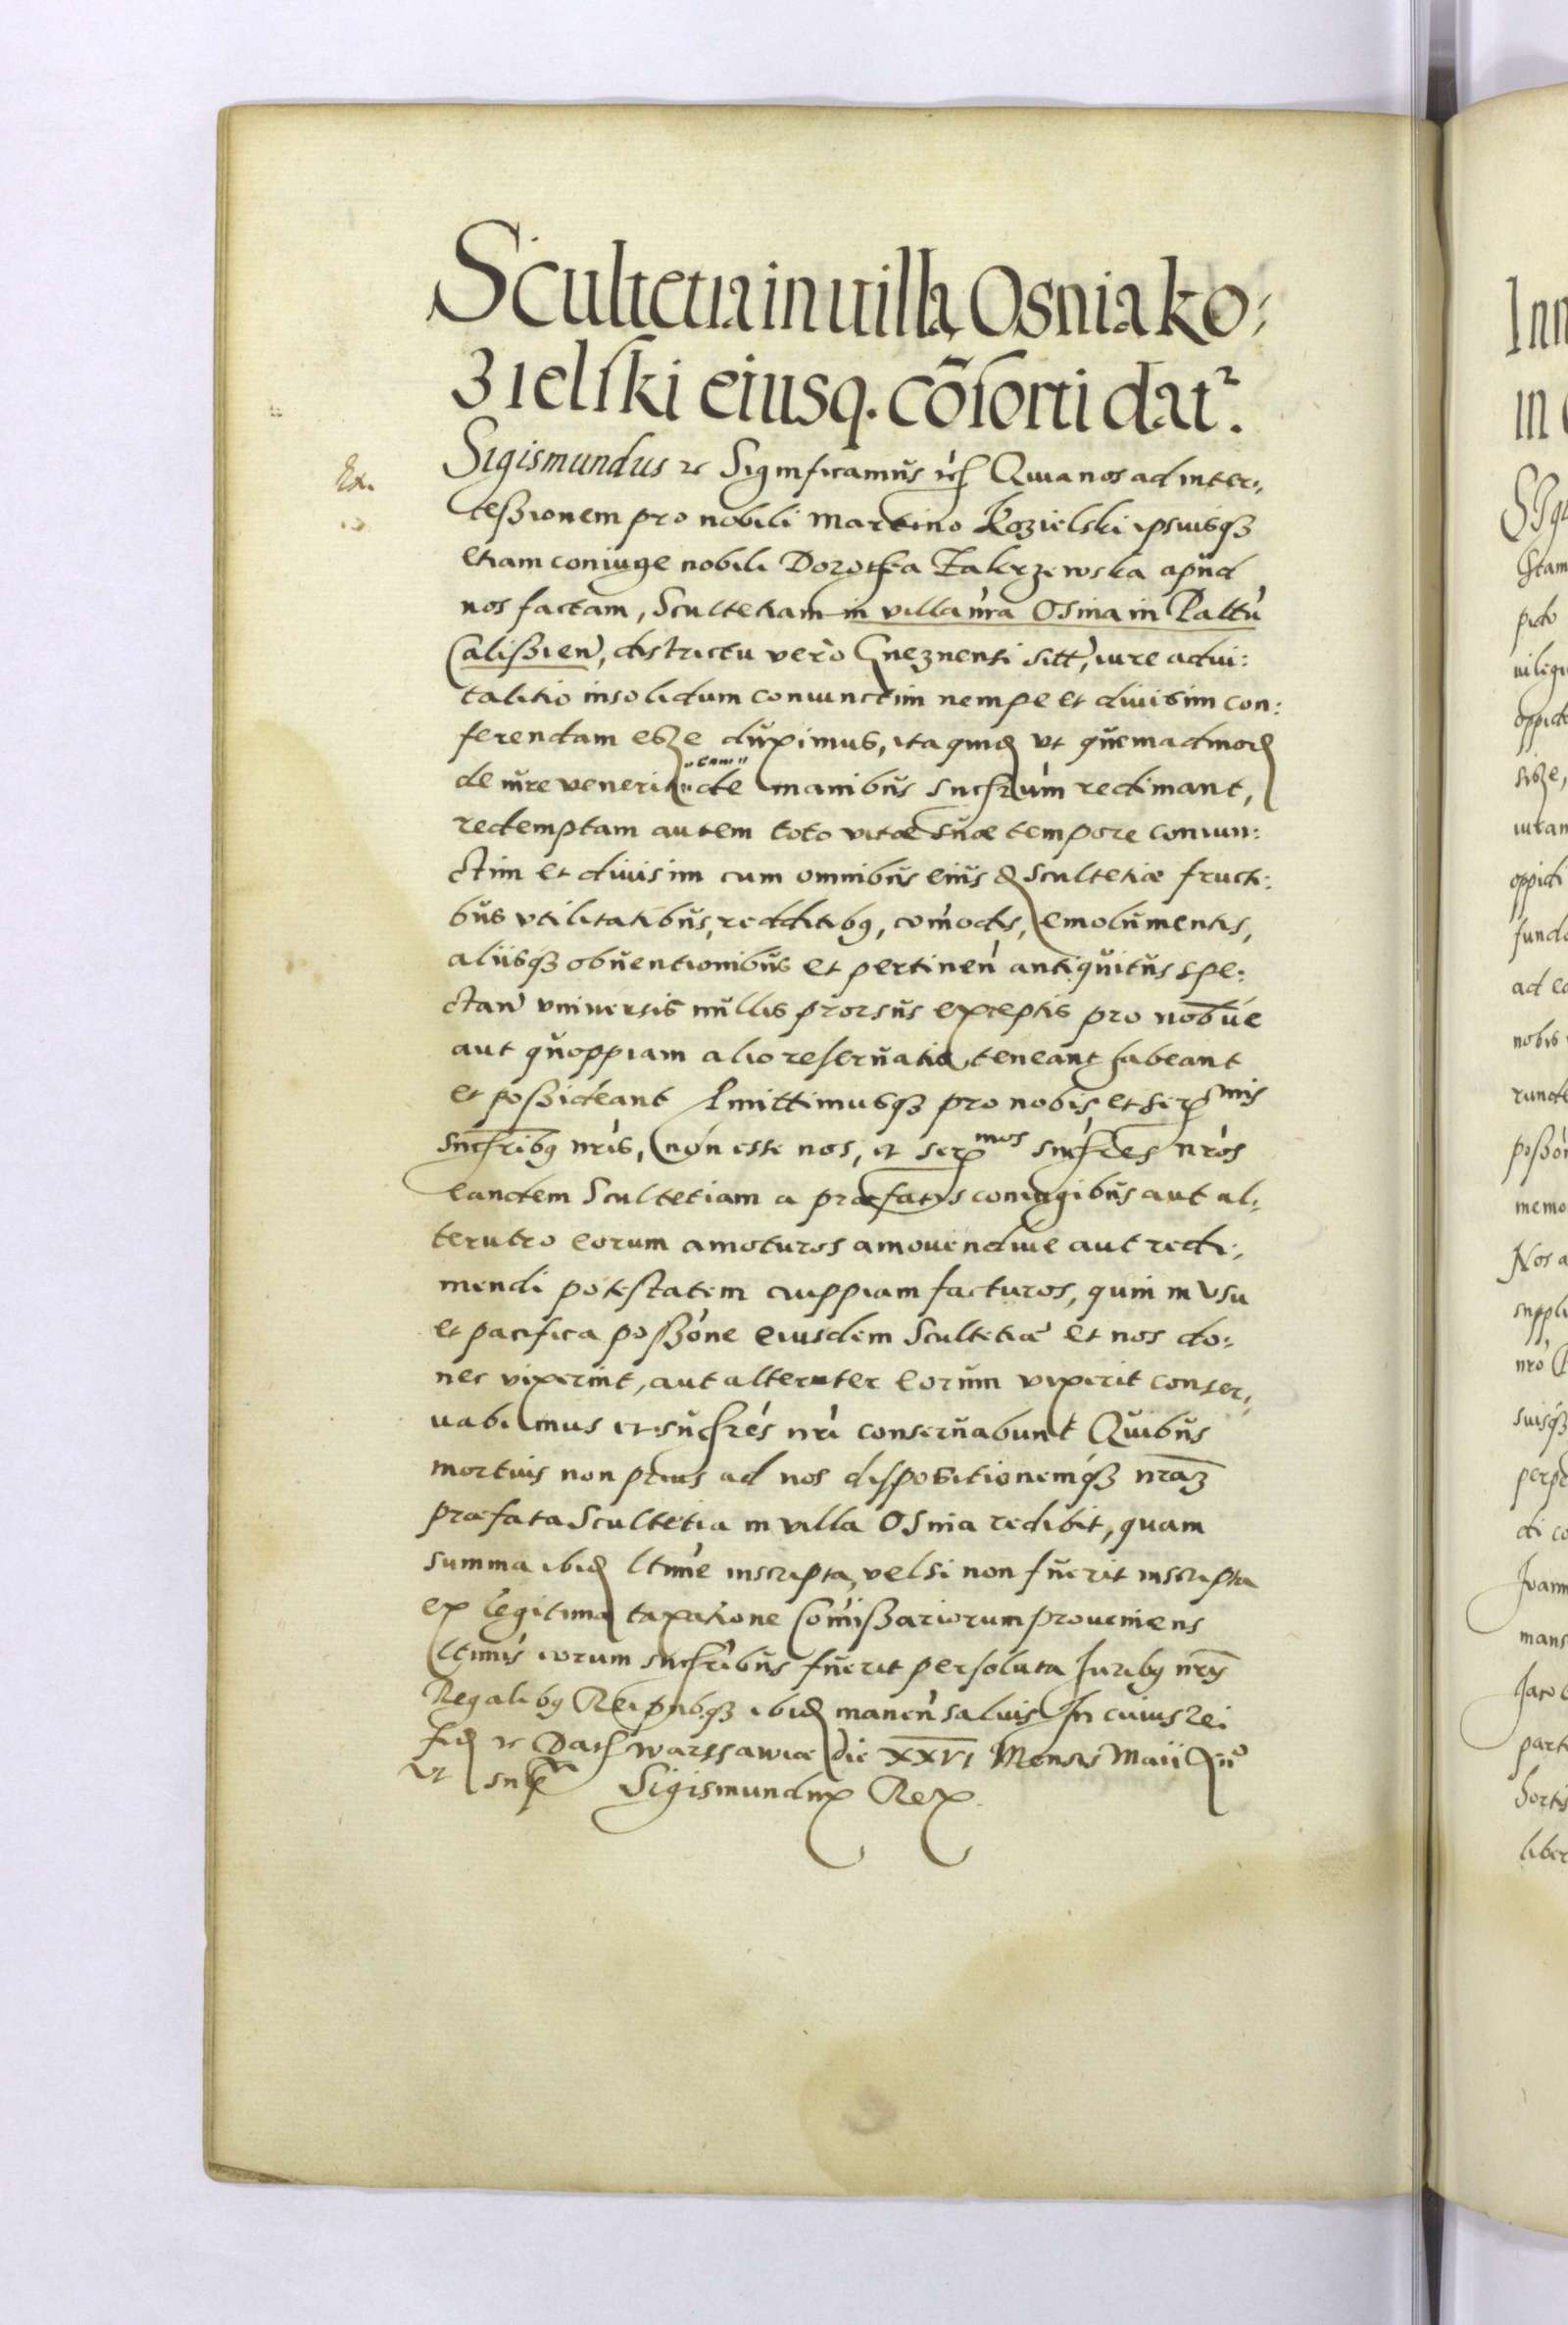 Scultetia in uilla Osnia ko:
zielski eiusq. cōsorti datr.
Sigismundus etc Significamus etc Quia nos ad inter:
cessionem pro nobili Martino Kozielski ipsiusqȝ
etiam coniuge nobili Dorothea Zakrzewska apud
nos factam, Scultetiam in villa nra Osnia in Pallu
Calissien, districtu vero Gneznensi sitt, iure advi:
talitio insolidum coniunctim nempe et divisim con:
ferendam esse duximus, ita quid vt quemadmod
de iure veneri eam de manibus suchrum redimant,
redemptam autem toto vitæ suæ tempore coniun:
ctim et divisim cum omnibus eius d Scultetiæ fructi:
bus vtilitatibus, redditibq, comodis, emolumentis,
aliisqȝ obuentionibus et pertinen antiquitus spe:
ctan vniuersis nullis prorsus exceptis pro nobve
aut quoppiam alio reseruatis, teneant habeant
et possideant Pmittimusqȝ pro nobis et ser mis
suchribq nris, non esse nos, et ser mos suchres nros
eandem Scultetiam a præfatis coniugibus aut al:
terutro eorum amoturos amouendiue aut redi:
mendi potestatem cuippiam facturos, quin in vsu
et pacifica possone eiusdem Scultetiæ et nos do:
nec vixerint, aut alteruter eorum vixerit conser:
uabimus et suchres nri conseruabunt Quibus
mortuis non prius ad nos dispositionemqȝ nraȝ
præfata Scultetia in villa Osnia redibit, quam
summa ibid ltime inscripta, vel si non fuerit inscripta
ex legitima taxatione Comissariorum proueniens
ltimis eorum suchribus fuerit persoluta Juribq nris
Regalibq Reipubqȝ ibid manen saluis In cuius rei
fid etc Dat Warssawiæ die XXVI Mensis Maii
vt sup Sigismundus Rex